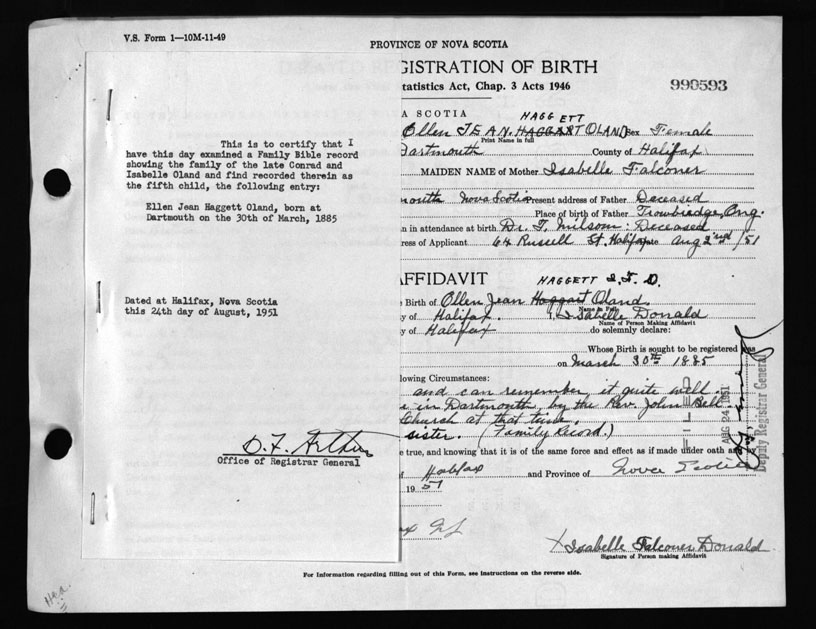 V.S. Form 1—10M-11-49
PROVINCE OF NOVA SCOTIA
GISTRATION OF BIRTH
tatistics Act, Chap. 3 Acts 1946
990593
A SCOTIA
HAGGETT
Ellen JEAN. HAGGART OLAND Sex Female
Print Name in full
Dartmouth County of Halifax
MAIDEN NAME of Mother Isabelle Falconer
mouth Nova Scotia Present address of Father Deceased
Place of birth of Father Trowbridge, Eng.
n in attendance at birth Dr. T. Milsom: Deceased
ress of Applicant 64 Russell St. Halifax Date Aug 2nd /51
This is to certify that I
have this day examined a Family Bible record
showing the family of the late Conrad and
Isabelle Oland and find recorded therein as
the fifth child, the following entry:
Ellen Jean Haggett Oland, born at
Dartmouth on the 30th of March, 1885
Dated at Halifax, Nova Scotia
this 24th day of August, 1951
Office of Registrar General
AFFIDAVIT
HAGGETT I. F. D.
e Birth of Ellen Jean Haggart Oland
Name in Full
y of Halifax. I, Isabelle Donald
Name of Person Making Affidavit
y of Halifax do solemnly declare:
Whose Birth is sought to be registered was
on March 30th 1885
lowing Circumstances:
and can remember it quite well
e in Dartmouth, by the Rev. John Bell
Church at that time.
sister. (Family Record.)
e true, and knowing that it is of the same force and effect as if made under oath
f Halifax and Province of Nova Scotia
1951
AUG 24 1951
Deputy Registrar General
X Isabelle Falconer Donald
Signature of Person making Affidavit
For Information regarding filling out of this Form, see instructions on the reverse side.